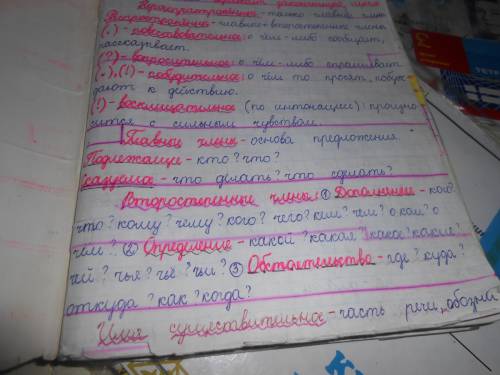 Нераспространённое - только главные члены
Распространённое - главные + второстепенные члены
(.) - повествовательное: о чём-либо сообщает,
рассказывает.
(?) - вопросительное: о чём-либо спрашивает
(.),(!) - побудительное: о чём то просят, побуж
дают к действию.
(!) - восклицательное (по интонации): произно
сится с сильным чувством.
Главные члены - основа предложения
Подлежащее - кто? что?
Сказуемое - что делать? что сделать?
Второстепенные члены: ① Дополнение - кого?
что? кому? чему? кого? чего? кем? чем? о ком? о
чём? ② Определение - какой? какая? какое? какие?
чей? чья? чьё? чьи? ③ Обстоятельство - где? куда?
откуда? как? когда?
Имя существительное - часть речи, обозна